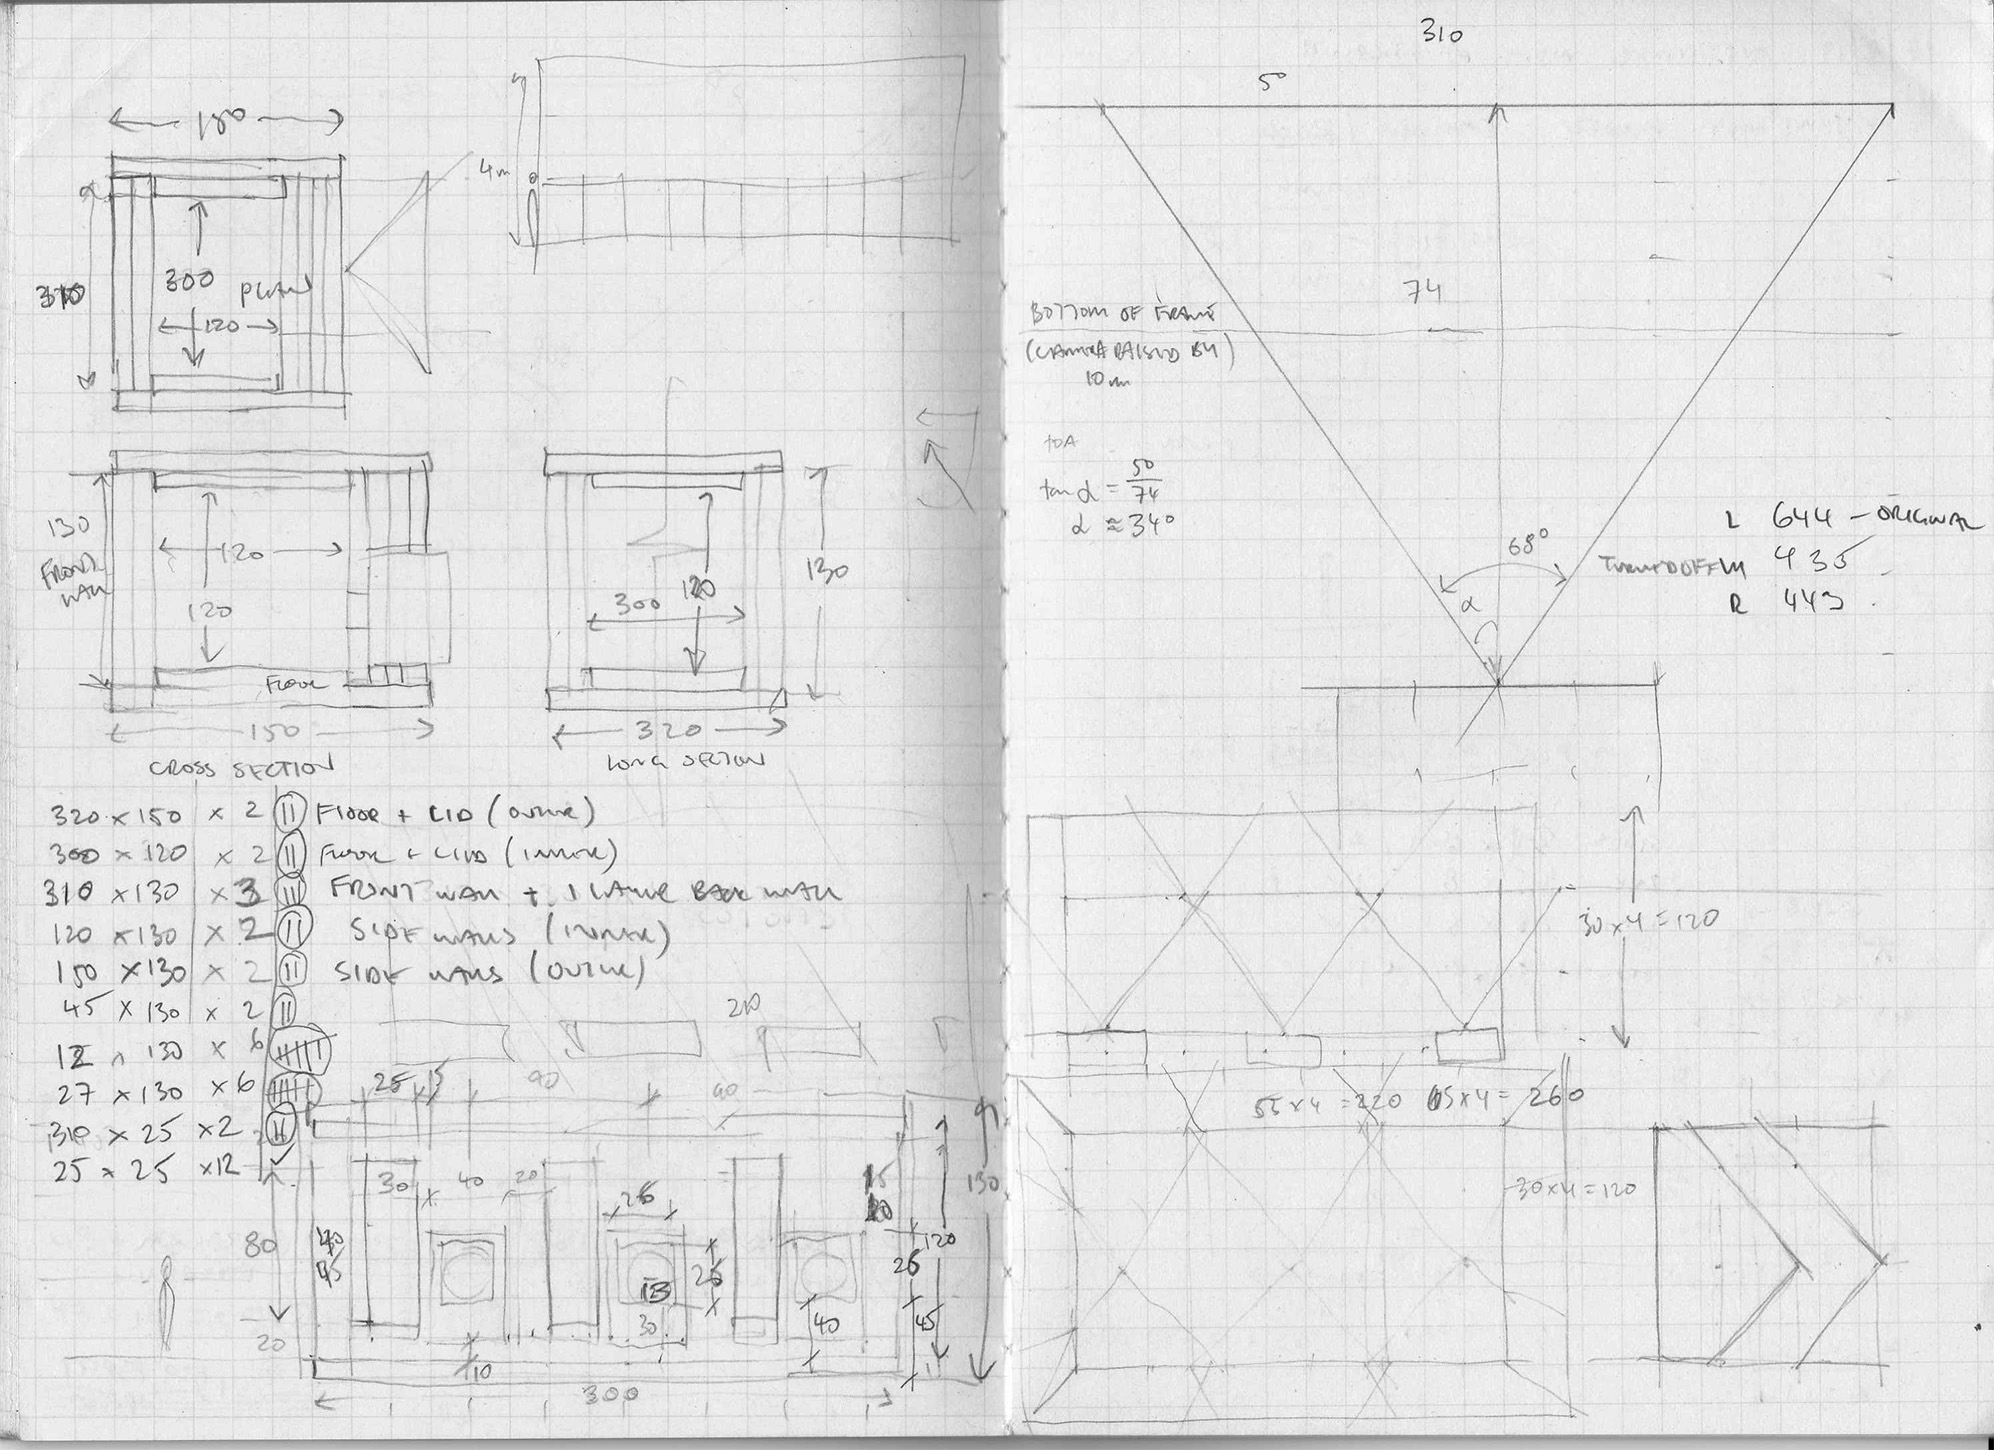 180
370
300
PLAN
120
4m
130
FRONT
WALL
120
120
FLOOR
150
CROSS SECTION
300
120
130
320
LONG SECTION
320 x 150 x 2 FLOOR + LID (OUTER)
300 x 120 x 2 FLOOR + LID (INNER)
310 x 130 x 3 FRONT WALL + 1 LAYER BACK WALL
120 x 130 x 2 SIDE WALLS (INNER)
150 x 130 x 2 SIDE WALLS (OUTER)
45 x 130 x 2
12 x 130 x 6
27 x 130 x 6
310 x 25 x 2
25 x 25 x 12
210
25 15 90 90
30 40 20
26
15
130
80
45
120
26
26
13
30
40
45
20
10
300
310
50
74
BOTTOM OF FRAME
(CAMERA RAISED BY)
10mm
TOA
tan α = 50/74
α ≈ 34°
68°
α
L 644 - ORIGINAL
TURNED OFF M 435
R 443
30 x 4 = 120
55 x 4 = 220 65 x 4 = 260
30 x 4 = 120